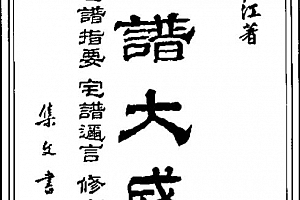 江著
譜大成
譜指要 宅譜邇言 修
集文書